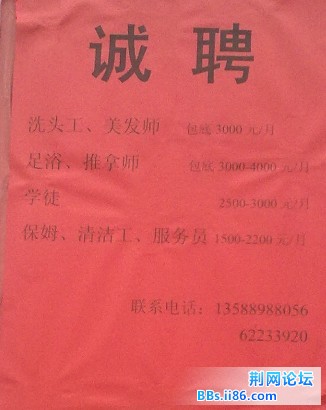 诚聘
洗头工、美发师 包底3000元/月
足浴、推拿师 包底3000-4000元/月
学徒 2500-3000元/月
保姆、清洁工、服务员 1500-2200元/月
联系电话：13588988056
62233920
荆网论坛
BBs.ii86.com